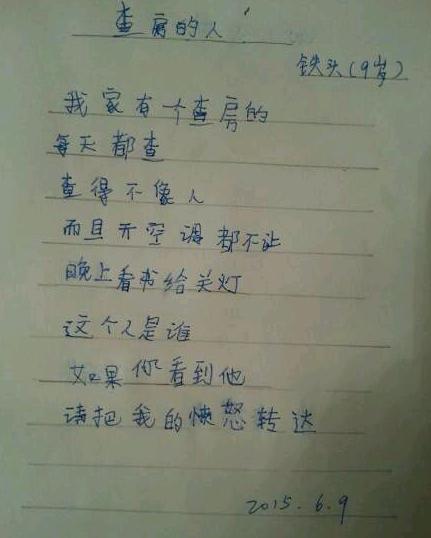 查房的人
铁头(9岁)
我家有个查房的
每天都查
查得不像人
而且开空调都不让
晚上看书给关灯
这个人是谁
如果你看到他
请把我的愤怒转达
2015.6.9